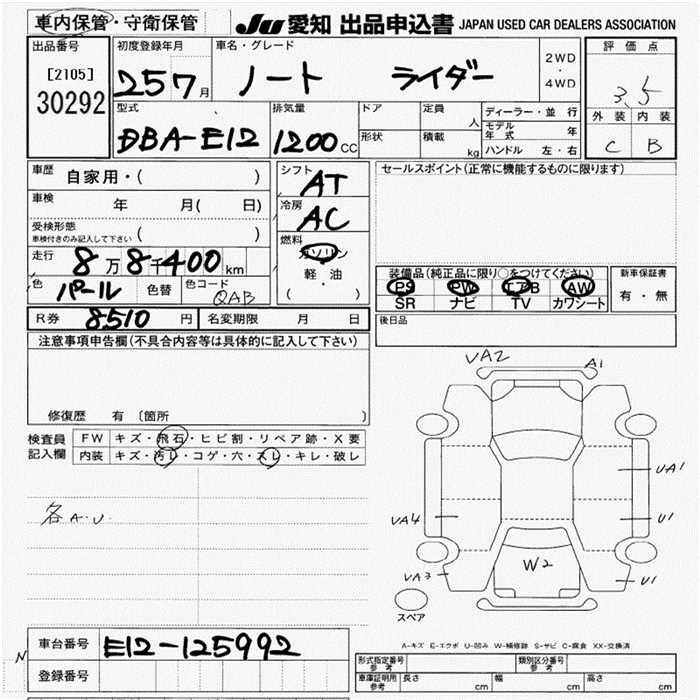 車内保管・守衛保管
JU 愛知 出品申込書 JAPAN USED CAR DEALERS ASSOCIATION
出品番号
[2105]
30292
初度登録年月
25 7月
車名・グレード
ノート ライダー
2WD
・
4WD
評価点
3.5
外装 内装
C B
型式
DBA-E12
排気量
1200 CC
ドア
形状
定員 人
積載 kg
ディーラー・並行
モデル年式 年
ハンドル 左・右
車歴 自家用・( )
車検 年 月( 日)
受検形態
車検付きのみ記入して下さい ( )
走行 8万8千400km
色 パール 色替 色コード QAB
シフト AT
冷房 AC
燃料
ガソリン
軽・油
( ・ )
セールスポイント(正常に機能するものに限ります)
装備品(純正品に限り○をつけてください)
PS PW エアB AW
SR ナビ TV カワシート
新車保証書
有・無
R券 8510 円 名変期限 月 日
後日品
注意事項申告欄(不具合内容等は具体的に記入して下さい)
修復歴 有 〔箇所 〕
検査員記入欄
FW キズ・飛石・ヒビ割・リペア跡・X要
内装 キズ・汚レ・コゲ・穴・スレ・キレ・破レ
各A.U.
VA2 A1
UA1
VA4 U1
W2
VA3 U1
スペア
A-キズ E-エクボ U-凹み W-補修跡 S-サビ C-腐食 XX-交換済
車台番号 E12-125992
登録番号
N
形式指定番号 参考
類別区分番号 参考
車庫証明用 参考 長さ cm 幅 cm 高さ cm